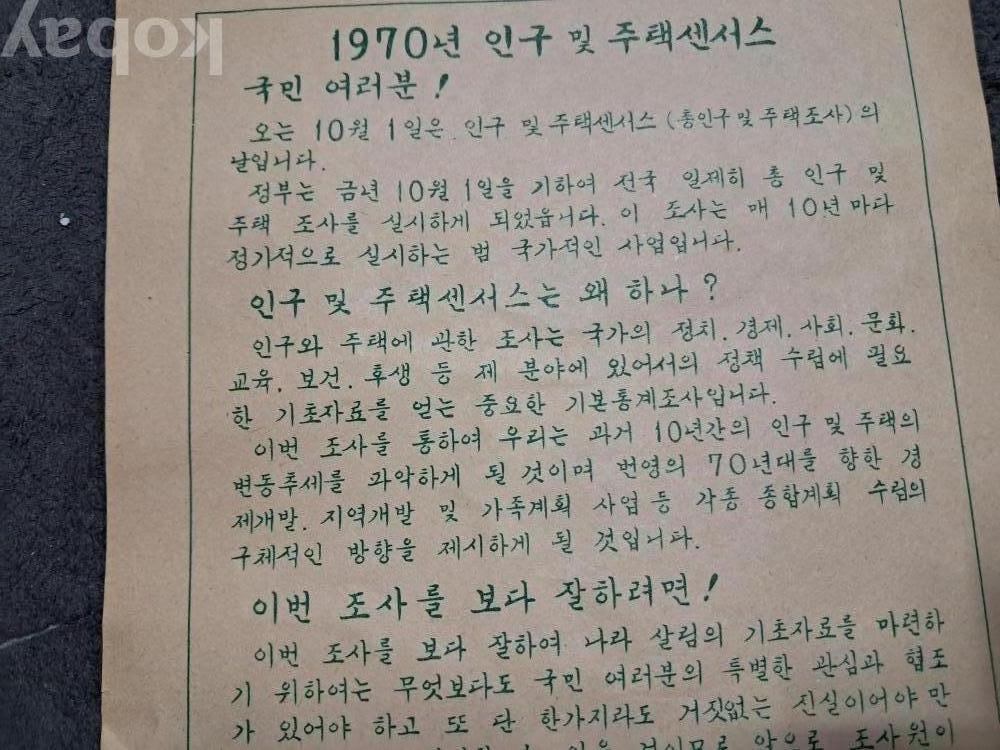 kobay
1970년 인구 및 주택센서스
국민 여러분!
오는 10월 1일은 인구 및 주택센서스 (총인구 및 주택조사)의
날입니다.
정부는 금년 10월 1일을 기하여 전국 일제히 총 인구 및
주택 조사를 실시하게 되었읍니다. 이 조사는 매 10년마다
정기적으로 실시하는 범 국가적인 사업입니다.
인구 및 주택센서스는 왜 하나?
인구와 주택에 관한 조사는 국가의 정치. 경제. 사회. 문화.
교육. 보건. 후생 등 제 분야에 있어서의 정책 수립에 필요
한 기초자료를 얻는 중요한 기본통계조사입니다.
이번 조사를 통하여 우리는 과거 10년간의 인구 및 주택의
변동추세를 파악하게 될 것이며 번영의 70년대를 향한 경
제개발. 지역개발 및 가족계획 사업 등 각종 종합계획 수립의
구체적인 방향을 제시하게 될 것입니다.
이번 조사를 보다 잘하려면!
이번 조사를 보다 잘하여 나라 살림의 기초자료를 마련하
기 위하여는 무엇보다도 국민 여러분의 특별한 관심과 협조
가 있어야 하고 또 단 한가지라도 거짓없는 진실이어야 만
것이므로 앞으로 조사원이